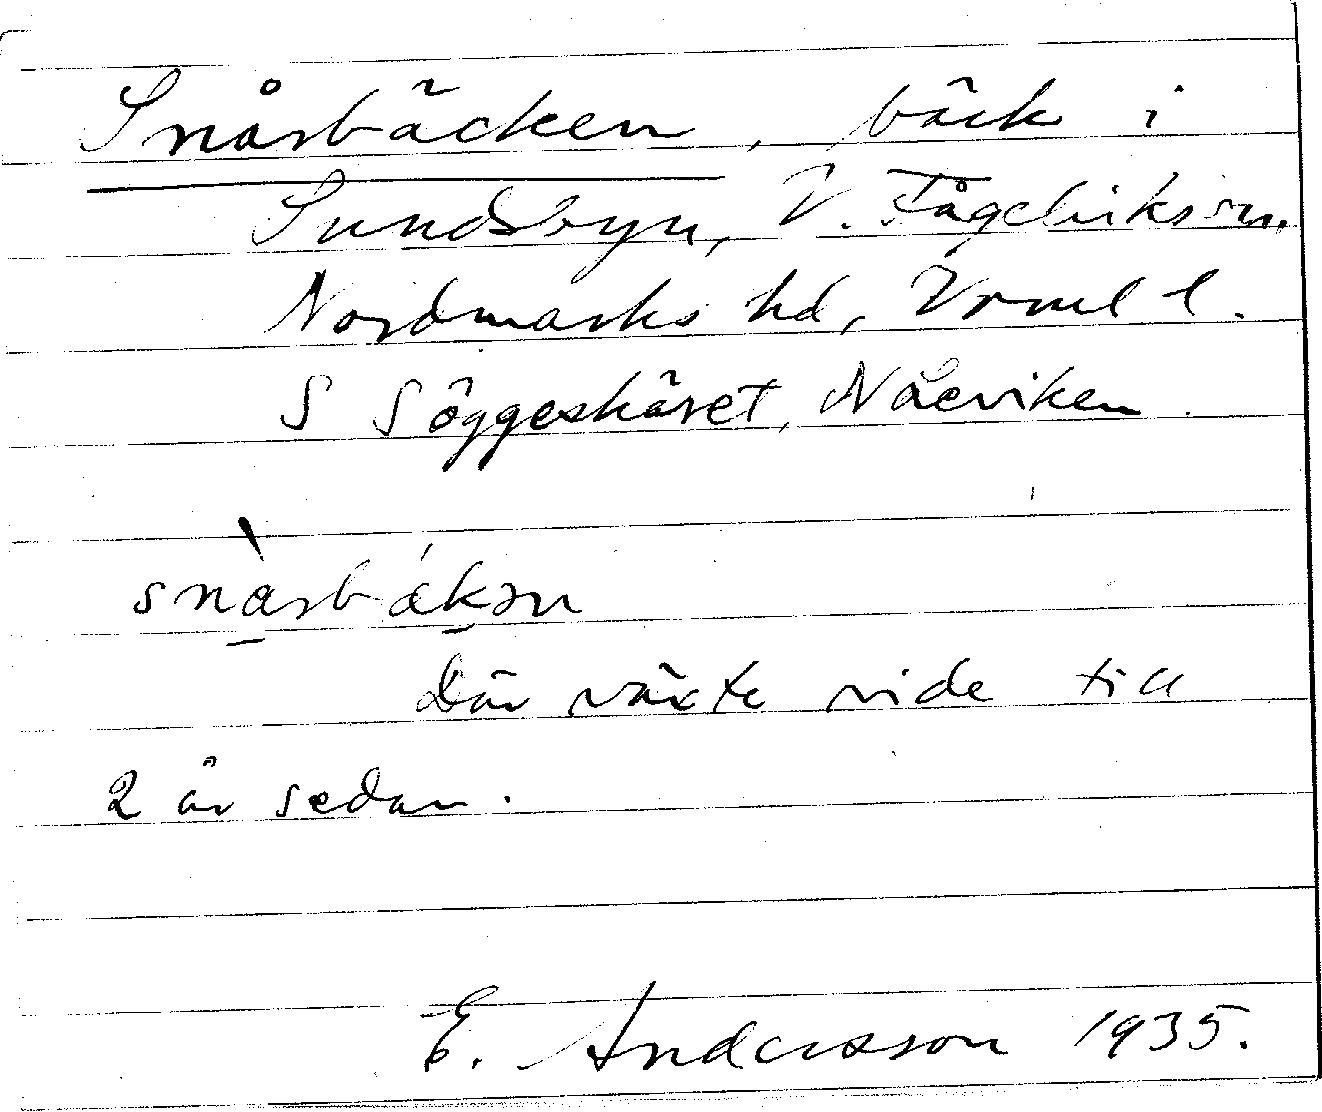 Snårbäcken, bäck i
Sundsbyn, V. Fågelviks sn,
Nordmarks hd, Vrml l.
S Söggeskäret, Nåeviken
snàrbákən
Där växte vide till
2 år sedan.
E. Andersson 1935.